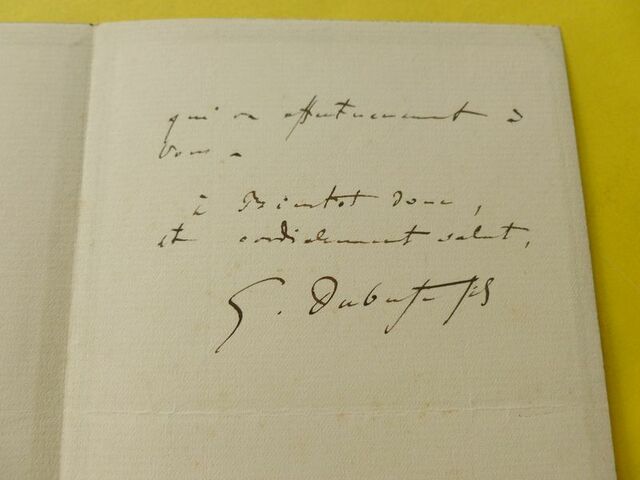 qui va affectueusement à
vous –
à Bientot donc,
et cordialement salut,
G. Dubufe fils